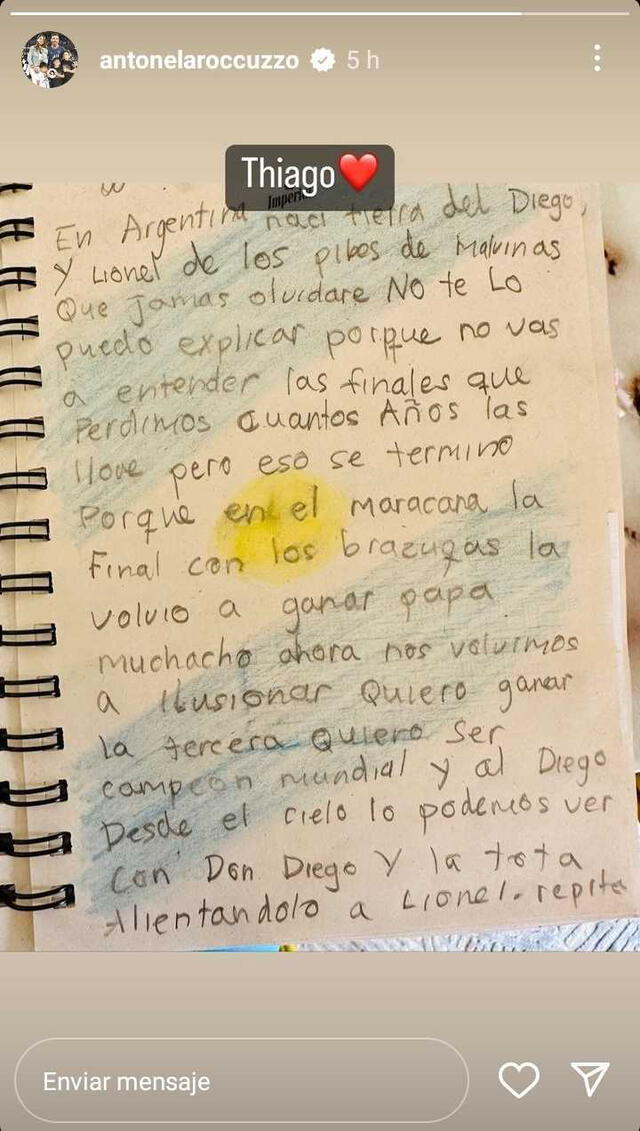 antonelaroccuzzo 5 h
Thiago❤️
En Argentina naci tierra del Diego,
y Lionel de los pibes de Malvinas
Que jamas olvidare No te Lo
puedo explicar porque no vas
a entender las finales que
Perdimos cuantos Años las
llove pero eso se termino
Porque en el maracana la
Final con los brazugas la
volvio a ganar papa
muchacho ahora nos volvimos
a ilusionar Quiero ganar
la tercera Quiero Ser
campeon mundial y al Diego
Desde el cielo lo podemos ver
con Don Diego Y la tota
Alientandolo a Lionel. repita
Enviar mensaje